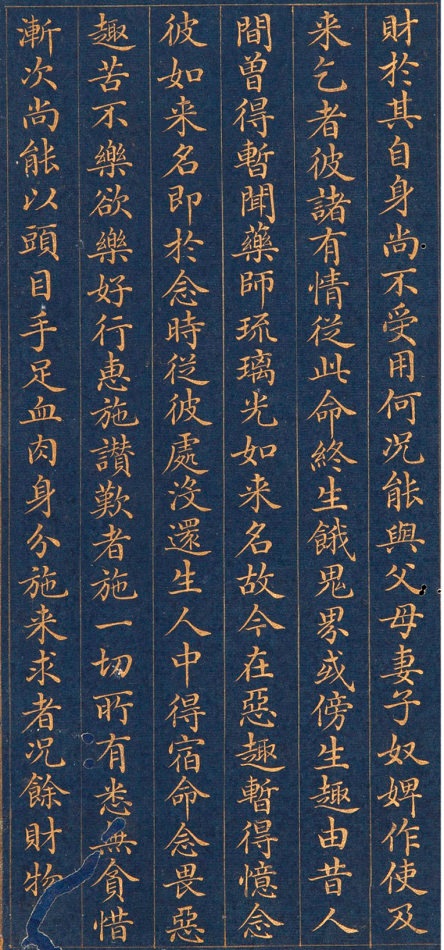 財於其自身尚不受用何况能與父母妻子奴婢作使及
来乞者彼諸有情從此命終生餓鬼界或傍生趣由昔人
間曽得暫聞藥師琉璃光如来名故今在惡趣暫得憶念
彼如来名即於念時從彼處没還生人中得宿命念畏惡
趣苦不樂欲樂好行恵施讃歎者施一切所有悉無貪惜
漸次尚能以頭目手足血肉身分施来求者况餘財物